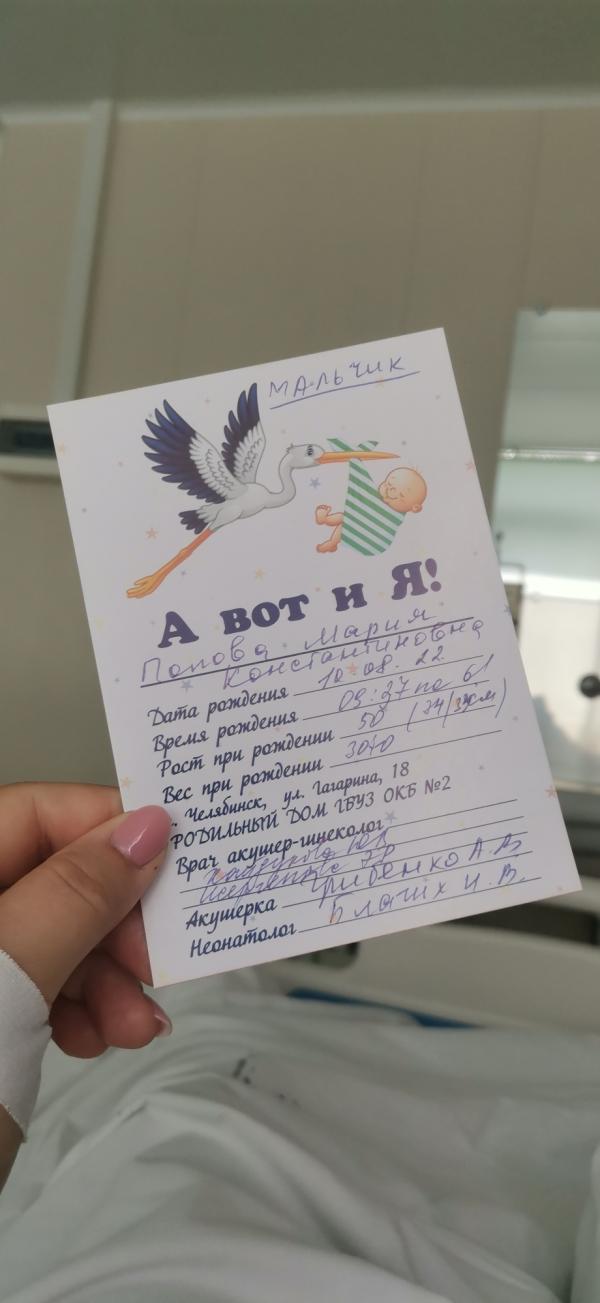 МАЛЬЧИК
А вот и Я!
Попова Мария
Константиновна
Дата рождения 10.08.22
Время рождения 09:37
Рост при рождении 50
Вес при рождении 3070
г. Челябинск, ул. Гагарина, 18
РОДИЛЬНЫЙ ДОМ ГБУЗ ОКБ №2
Врач акушер-гинеколог
Акушерка Грибенко А.В.
Неонатолог Блатих И.В.